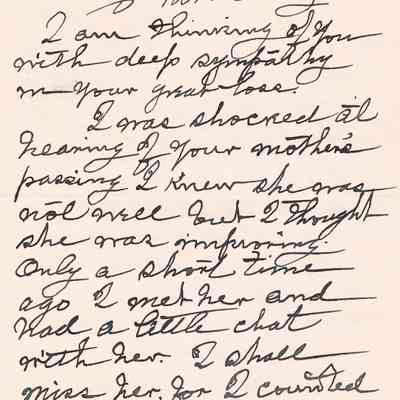 I am thinking of you
with deep sympathy
in your great loss.
I was shocked at
hearing of your mother's
passing I knew she was
not well but I thought
she was improving.
Only a short time
ago I met her and
had a little chat
with her. I shall
miss her, for I counted